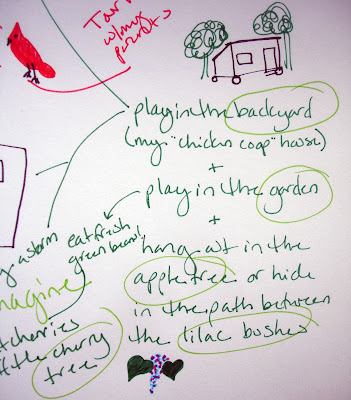 w/my
parents
play in the backyard
(my "chicken coop" house)
+
play in the garden
eat fresh
green beans!
+
hang out in the
apple tree or hide
in the path between
the lilac bushes
a storm
imagine
cherries
the cherry
tree